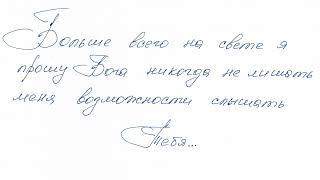 Больше всего на свете я
прошу Бога никогда не лишать
меня возможности слышать
Тебя...